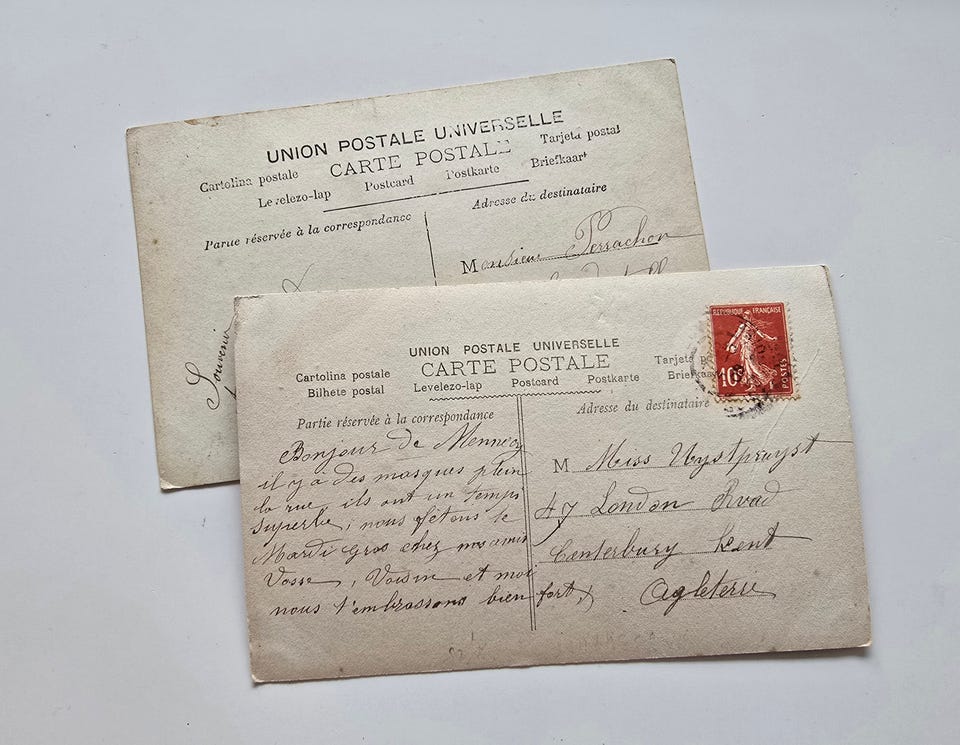 UNION POSTALE UNIVERSELLE
CARTE POSTALE
Cartolina postale
Tarjeta postal
Levelezo-lap
Postcard
Postkarte
Briefkaart
Partie réservée à la correspondance
Adresse du destinataire
Monsieur Perrachon
Souvenir
UNION POSTALE UNIVERSELLE
CARTE POSTALE
Cartolina postale
Tarjeta p
Bilhete postal
Levelezo-lap
Postcard
Postkarte
Briefkaa
Partie réservée à la correspondance
Adresse du destinataire
REPUBLIQUE FRANÇAISE
10
POSTES
Bonjour de Mennecy
il y a des masques plein
la rue, ils ont un temps
superbe, nous fêtons le
Mardi gros chez nos amis
Vosse, Voisin et moi
nous t'embrassons bien fort
M Miss
47 London Road
Canterbury Kent
Agleterre